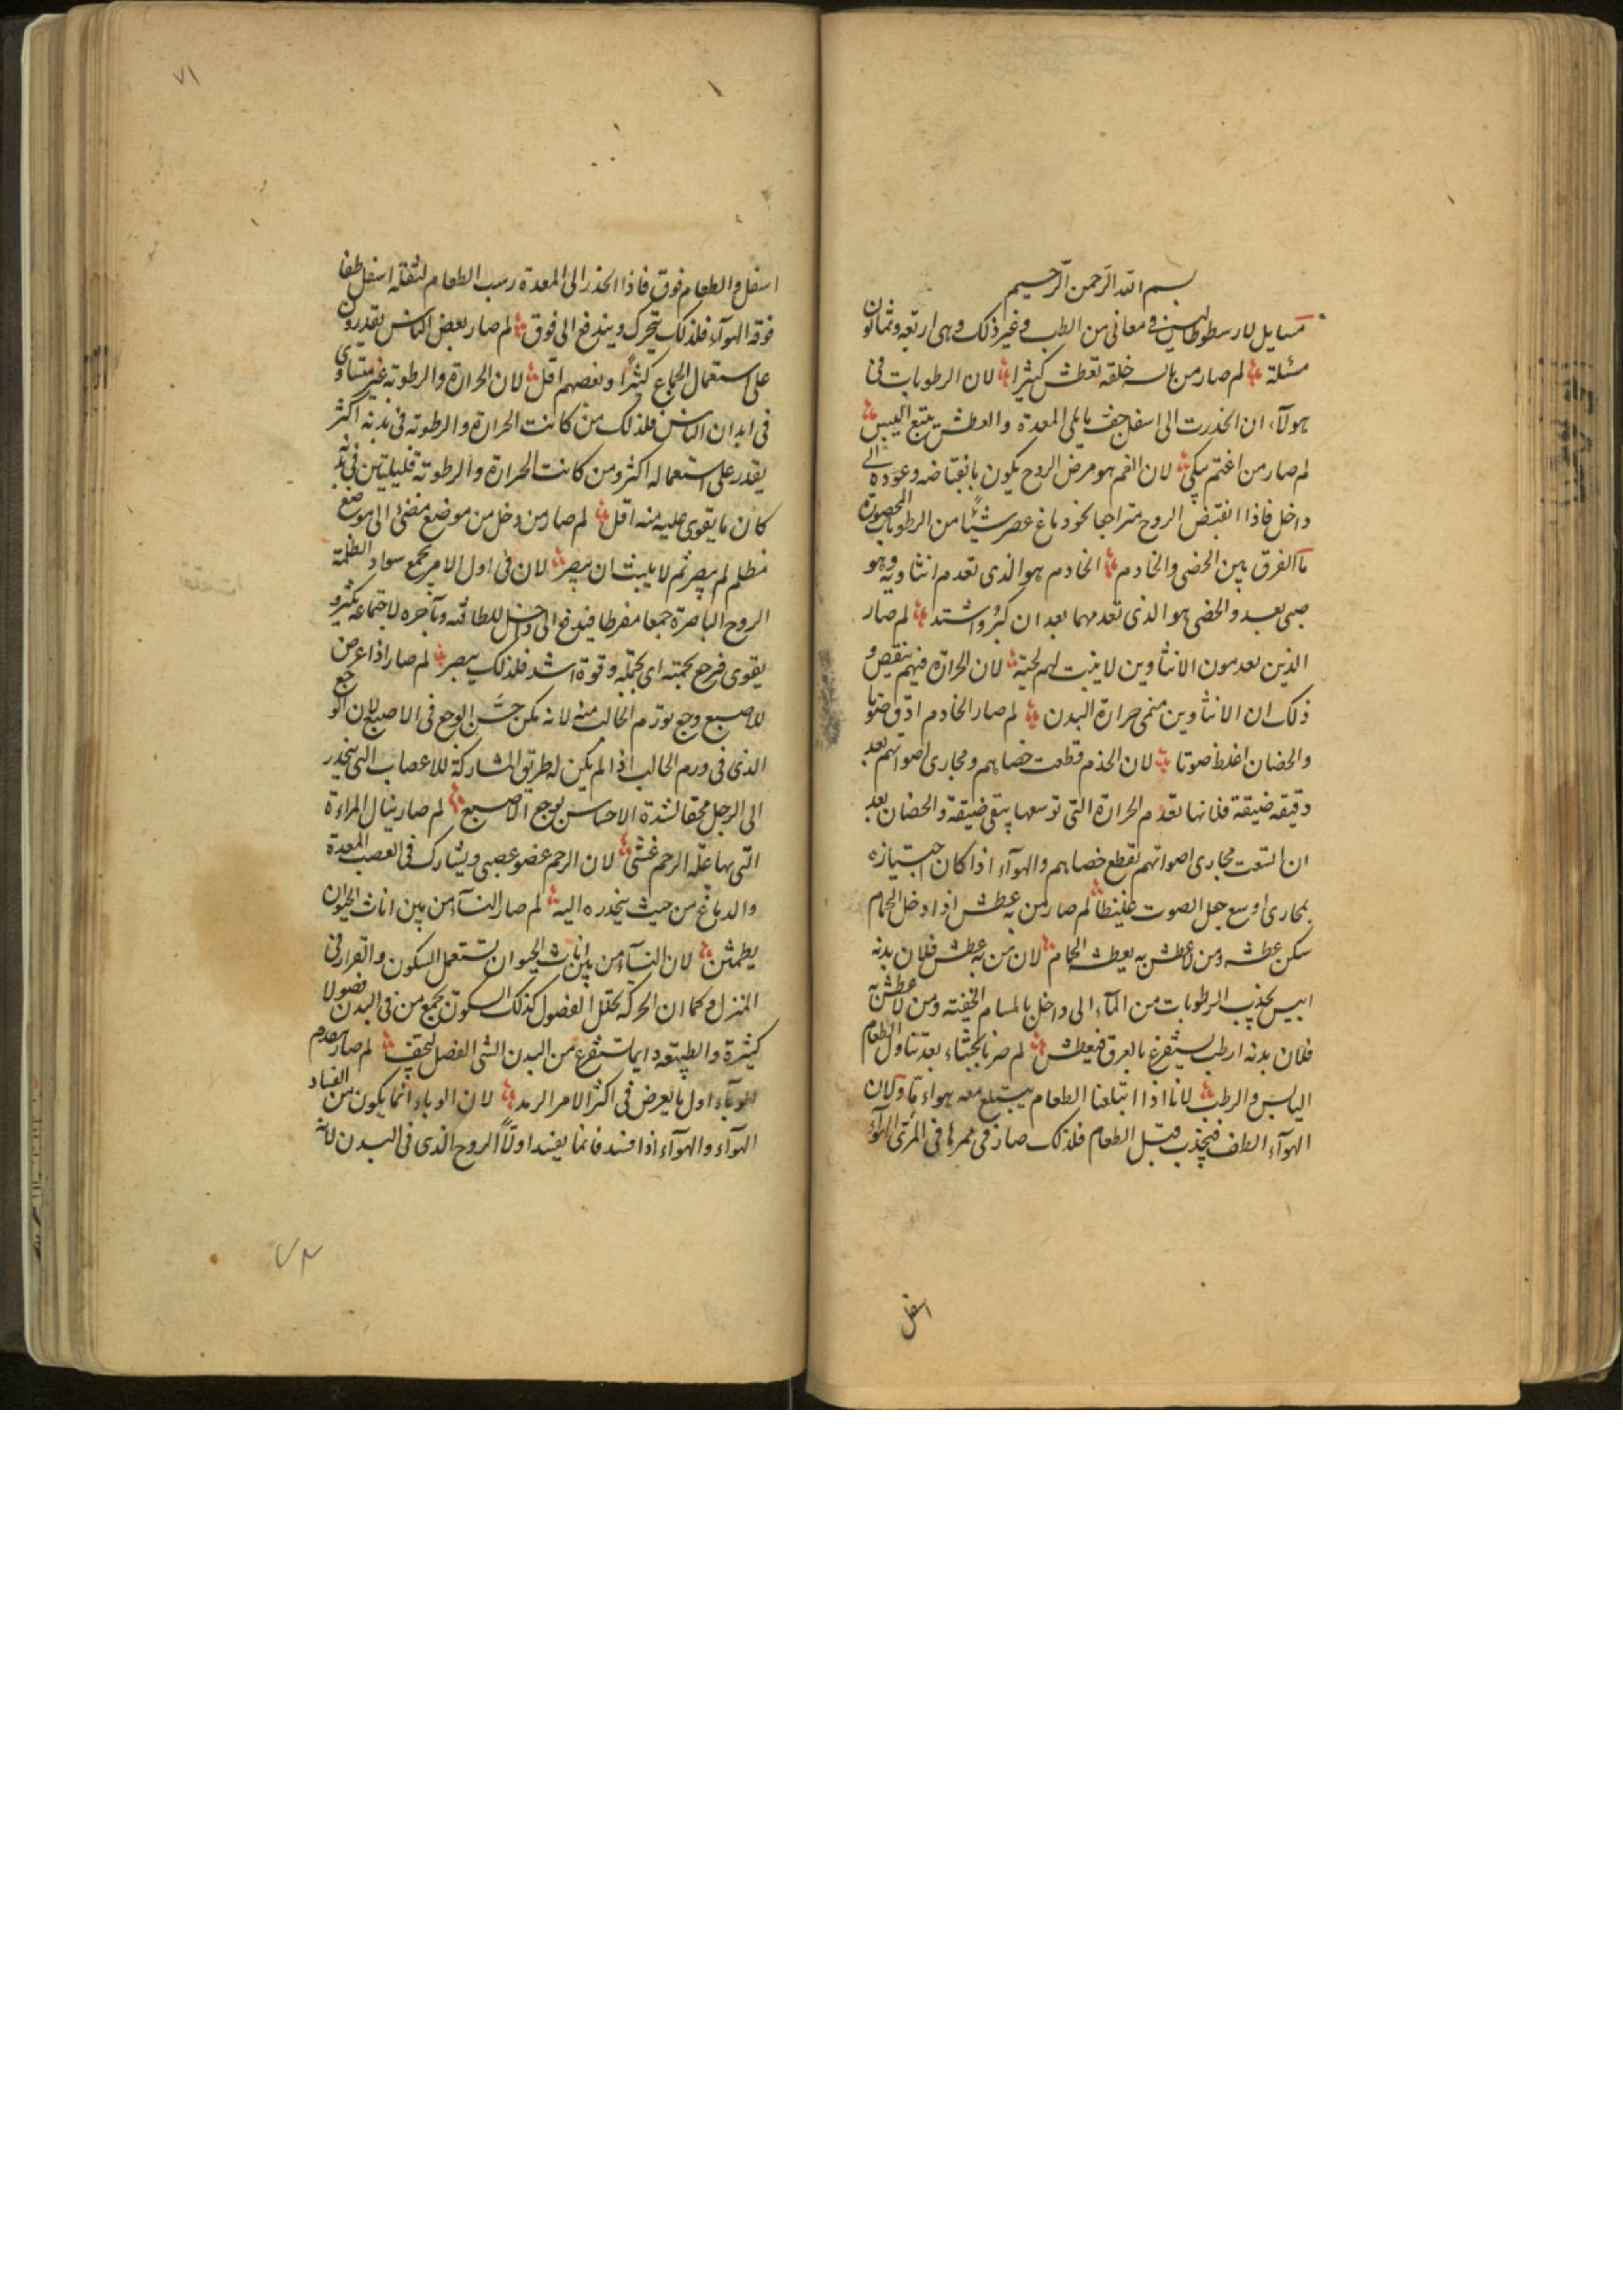 بسم الله الرحمن الرحيم
مسايل لارسطوطاليس في معاني من الطب و غير ذلك وهي اربعة وثمانون
مسئلة لم صار من خلقه تعطش كثيرا لان الرطوبات في
هولآء ان انحدرت الى اسفل جف ما يلي المعدة والعطش يتبع اليبس
لم صار من اغتم يبكي لان الغم هو مرض الروح يكون بانقباضه وعوده الى
داخل فاذا انقبض الروح متراجعا نحو دماغ عصر شيئا من الرطوبات المحصورة
ما الفرق بين الخصي والخادم الخادم هو الذي تعدم انثاويه وهو
صبي بعد والخصي هو الذي تعدمهما بعد ان كبر واشتد لم صار
الذين يعدمون الانثاوين لا ينبت لهم لحية لان الحرارة فيهم ينقص و
ذلك ان الانثاوين منمى حرارة البدن لم صار الخادم ادق صوتا
والخصيان اغلظ صوتا لان الخدم قطعت خصاهم ومجاري اصواتهم بعد
دقيقه ضيقة فلانها تعدم الحرارة التي توسعها يبقى ضيقة والخصيان بعد
ان اتسعت مجاري اصواتهم تقطع خصاهم والهوآء اذا كان اجتيازه
بمجاري اوسع جعل الصوت غليظا لم صار من به عطش اذا دخل الحمام
سكن عطشه ومن لا عطش به يعطشه الحمام لان من به عطش فلان بدنه
ايبس يجذب الرطوبات من المآء الى داخل بالمسام الخفية ومن لا عطش به
فلان بدنه ارطب يستفرغ بالعرق فيعطش لم صرنا نجشاء بعد تناول الطعام
اليابس والرطب لانا اذا ابتلعنا الطعام يبتلع معه هواء ما ولان
الهوآء الطف فيجذب قبل الطعام فلذلك صار في ممرها في المرئ الهوآء
اسفل
٧١
اسفل والطعام فوق فاذا انحدر الى المعدة رسب الطعام لثقله اسفل وطفا
فوقه الهوآء فلذلك يتحرك ويندفع الى فوق لم صار بعض الناس يقدرون
على استعمال الجماع كثيرا وبعضهم اقل لان الحرارة والرطوبة غير متساوى
في ابدان الناس فلذلك من كانت الحرارة والرطوبة في بدنه اكثر
يقدر على استعماله اكثر ومن كانت الحرارة والرطوبة قليلتين في بدنه
كان ما يقوى عليه منه اقل لم صار من دخل من موضع مضئ الى موضع
مظلم لم يبصر ثم لا يلبث ان يبصر لان في اول الامر يجمع سواد الظلمة
الروح الباصرة جمعا مفرطا فيندفع الى داخل للطافته وبآخره لاجتماعه يكثر و
يقوى فرجع بجمته اي بجملته وقوة اشد فلذلك يبصر لم صار اذا عرض
للاصبع وجع تورم الحالب منه لانه يكن حس الوجع في الاصبع لان الوجع
الذي في ورم الحالب اذا لم يكن له طريق المشاركة للاعصاب التي ينحدر
الى الرجل محقا لشدة الاحساس لوجع الاصبع لم صار ينال المراءة
التي بها علة الرحم غشي لان الرحم عضو عصبي ويشارك في العصب المعدة
والدماغ من حيث ينحدره اليه لم صار النسآء من بين اناث الحيوان
يطمثن لان النسآء من بين اناث الحيوان يستعمل السكون والقرار في
المنزل وكما ان الحركة تحلل الفضول كذلك السكون يجمع من في البدن فضولا
كثيرة والطبيعه دايما تستفرغ من البدن الشئ الفضل ليجف لم صار يقدم
الوبآء اول ما يعرض في اكثر الامر الرمد لان الوباء انما يكون من الفساد
الهوآء والهوآء اذا فسد فانما يفسد اولا الروح الذي في البدن لانه